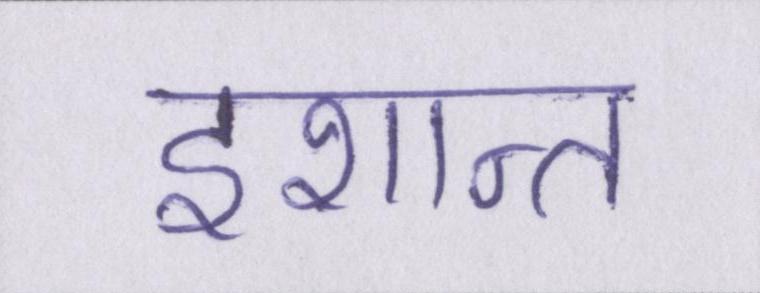 इशान्त